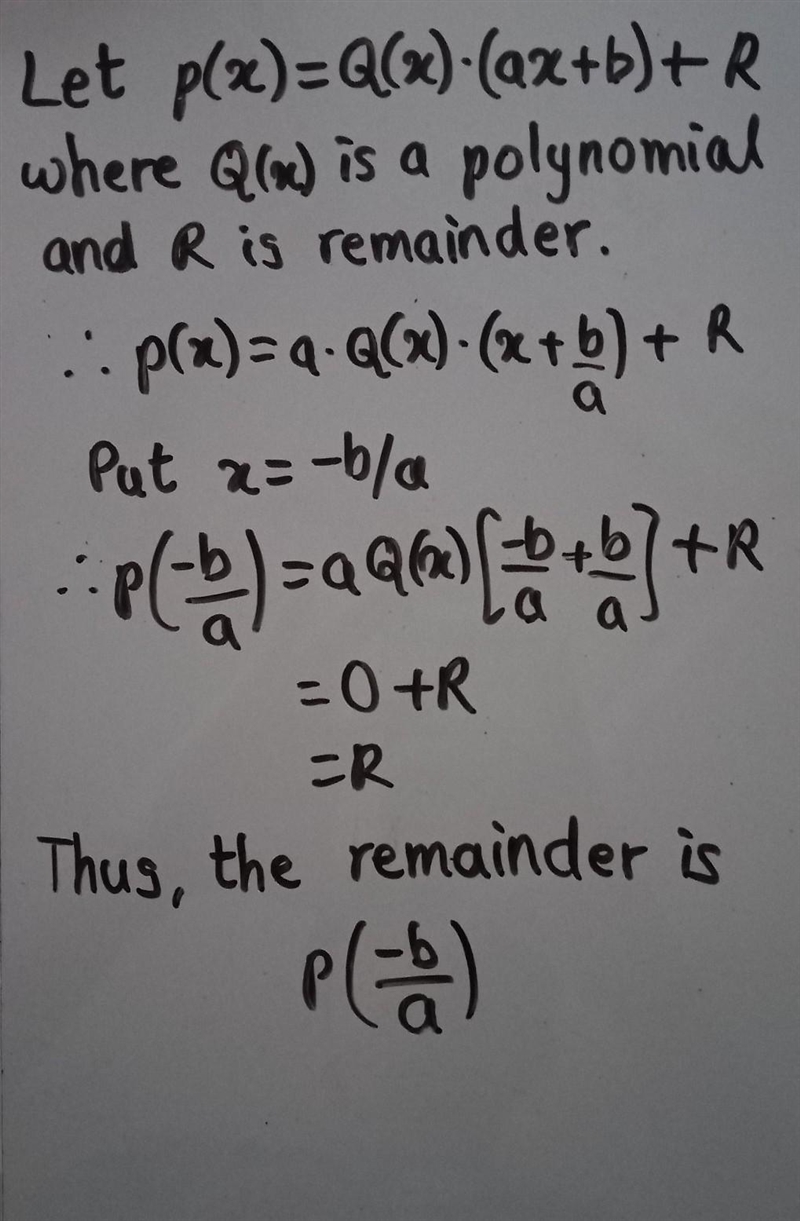 Let p(x)=Q(x)·(ax+b)+R
where Q(x) is a polynomial
and R is remainder.
∴ p(x)=a·Q(x)·(x+b/a)+R
Put x=-b/a
∴ p(-b/a)=aQ(x)[-b/a+b/a]+R
=0+R
=R
Thus, the remainder is
P(-b/a)